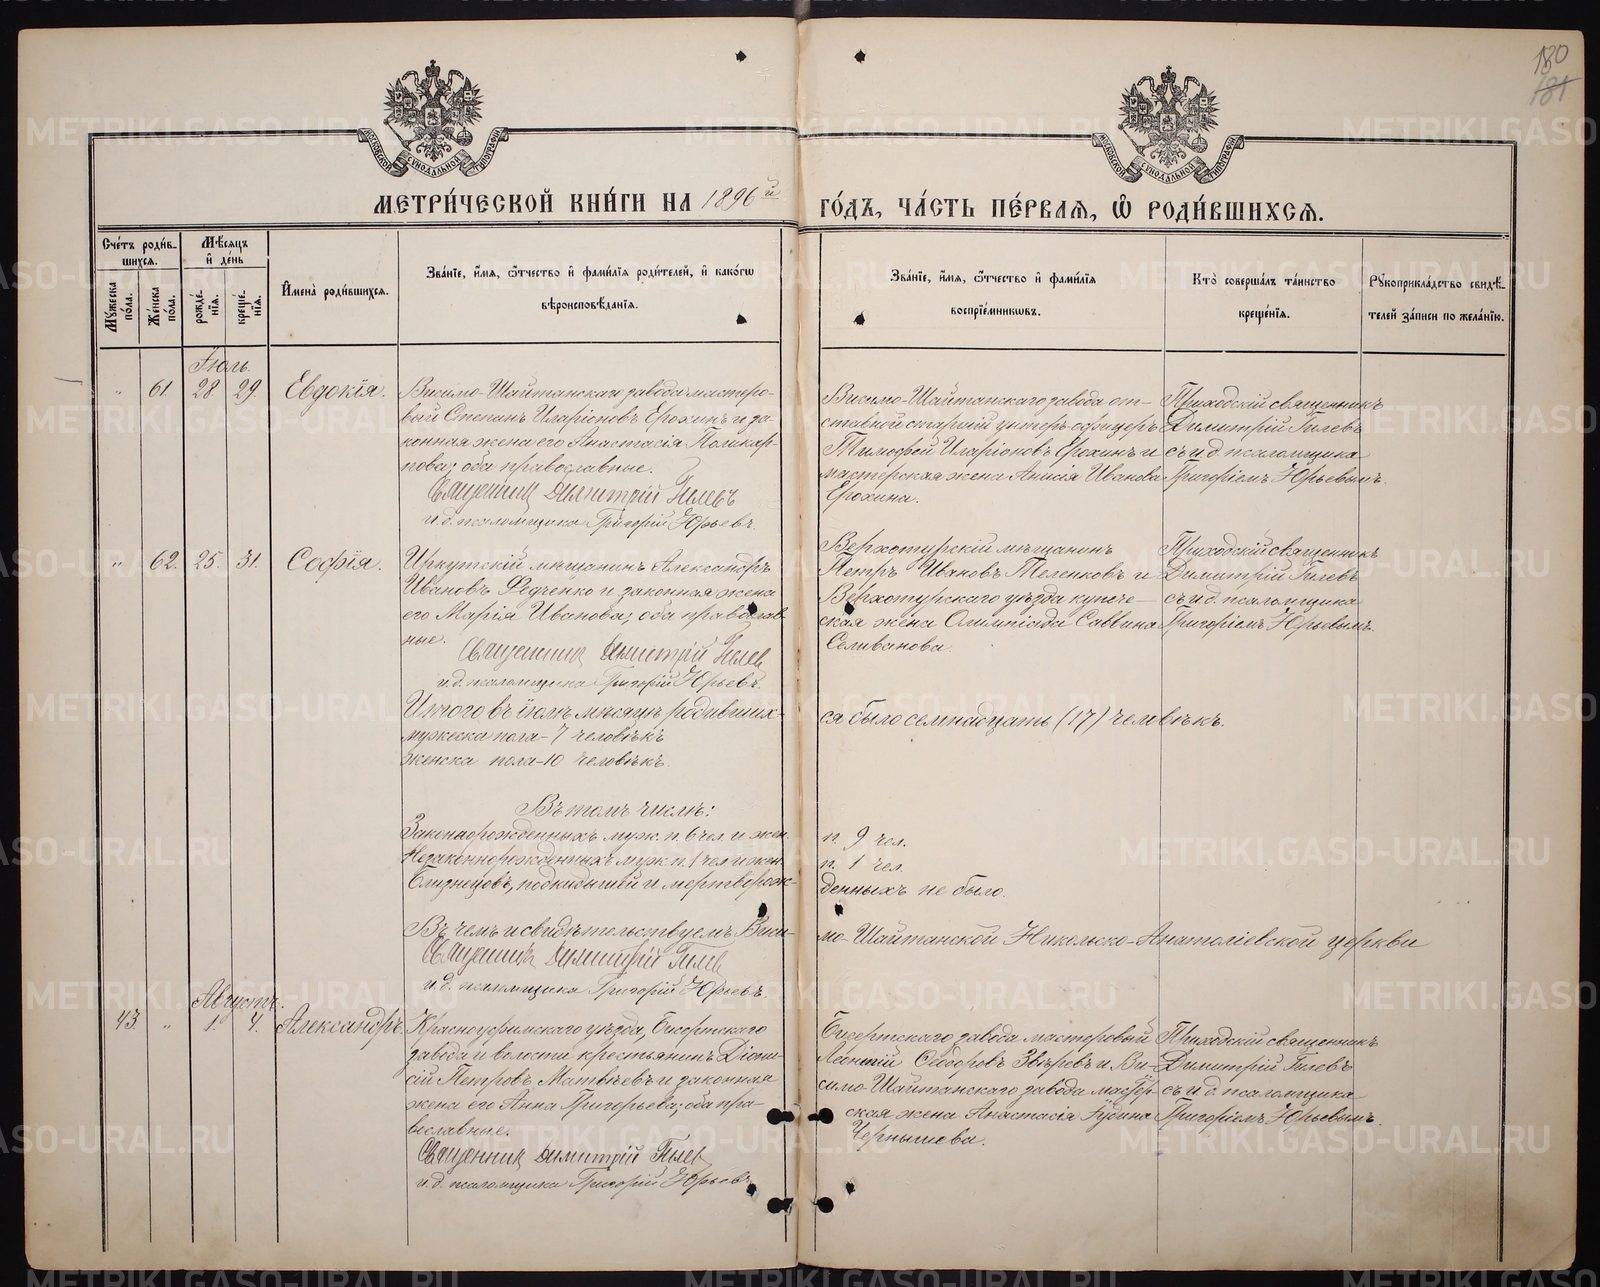 180
181
МОСКОВСКОЙ СУНОДАЛЬНОЙ ТИПОГРАФІИ
МОСКОВСКОЙ СУНОДАЛЬНОЙ ТИПОГРАФІИ
МЕТРИ́ЧЕСКОЙ КНИ́ГИ НА 1896й ГО́ДЪ, ЧА́СТЬ ПЕ́РВАѦ, Ѡ РОДИ́ВШИХСѦ.
Сче́тъ роди́вшихся.
Мꙋ́жеска по́ла.
Же́нска по́ла.
Мѣ́сяцъ и де́нь
рожде́нїя.
креще́нїя.
Имена̀ роди́вшихся.
Зва́нїе, и́мя, ѻ҆́тчество и фами́лїя роди́телей, и како́гѡ
вѣроисповѣ́данїя.
Зва́нїе, и́мя, ѻ҆́тчество и фами́лїя
воспрїе́мникѡвъ.
Кто̀ соверша́лъ та́инство
креще́нїя.
Рꙋкоприкла́дство свидѣ́-
телей за́писи по жела́нїю.
Іюль.
" 61. 28 29. Евдокія.
Висимо-Шайтанскаго завода мастеро-
вый Стефанъ Иларіоновъ Ерохинъ и за-
конная жена его Анастасія Поликар-
пова; оба православные.
Священник Димитрій Гилевъ
и. д. псаломщика Григорій Юрьевъ.
Висимо-Шайтанскаго завода от-
ставной старшій унтеръ-офицеръ
Тимофей Иларіоновъ Ерохинъ и
мастерская жена Анисія Иванова
Ерохина.
Приходскій священникъ
Димитрій Гилевъ
съ и. д. псаломщика
Григоріемъ Юрьевымъ.
" 62. 25. 31. Софія.
Иркутскій мѣщанинъ Александръ
Ивановъ Федченко и законная жена
его Марія Иванова; оба православ-
ные.
Священник Димитрій Гилев
и. д. псаломщика Григорій Юрьевъ.
Верхотурскій мѣщанинъ
Петръ Ивановъ Теленковъ и
Верхотурскаго уѣзда купече-
ская жена Олимпіада Саввина
Селиванова.
Приходскій священникъ
Димитрій Гилевъ
съ и. д. псаломщика
Григоріемъ Юрьевымъ.
Итого въ іюлѣ мѣсяцѣ родивших-ся было семнадцать (17) человѣкъ.
мужеска пола - 7 человѣкъ
женска пола - 10 человѣкъ.
Въ томъ числѣ:
Законнорожденныхъ муж. п. 6 чел. и жен. п. 9 чел.
Незаконнорожденныхъ муж. п. 1 чел. и жен. п. 1 чел.
Близнецовъ, подкидышей и мертворож-денныхъ не было.
Въ чемъ и свидѣтельствуемъ Виси-мо-Шайтанской Никольско-Анатоліевской церкви
Священник Димитрій Гилев
и. д. псаломщика Григорій Юрьевъ.
Августъ.
43 " 1. 4. Александръ.
Красноуфимскаго уѣзда, Бисертскаго
завода и волости крестьянинъ Діони-
сій Петровъ Матвѣевъ и законная
жена его Анна Григорьева; оба пра-
вославные.
Священник Димитрій Гилев
и. д. псаломщика Григорій Юрьевъ
Бисертскаго завода мастеровый
Леонтій Сидоровъ Звѣревъ и Ви-
симо-Шайтанскаго завода мастер-
ская жена Анастасія Гудина
Чернышева.
Приходскій священникъ
Димитрій Гилевъ
съ и. д. псаломщика
Григоріемъ Юрьевымъ.
METRIKI.GASO-URAL.RU